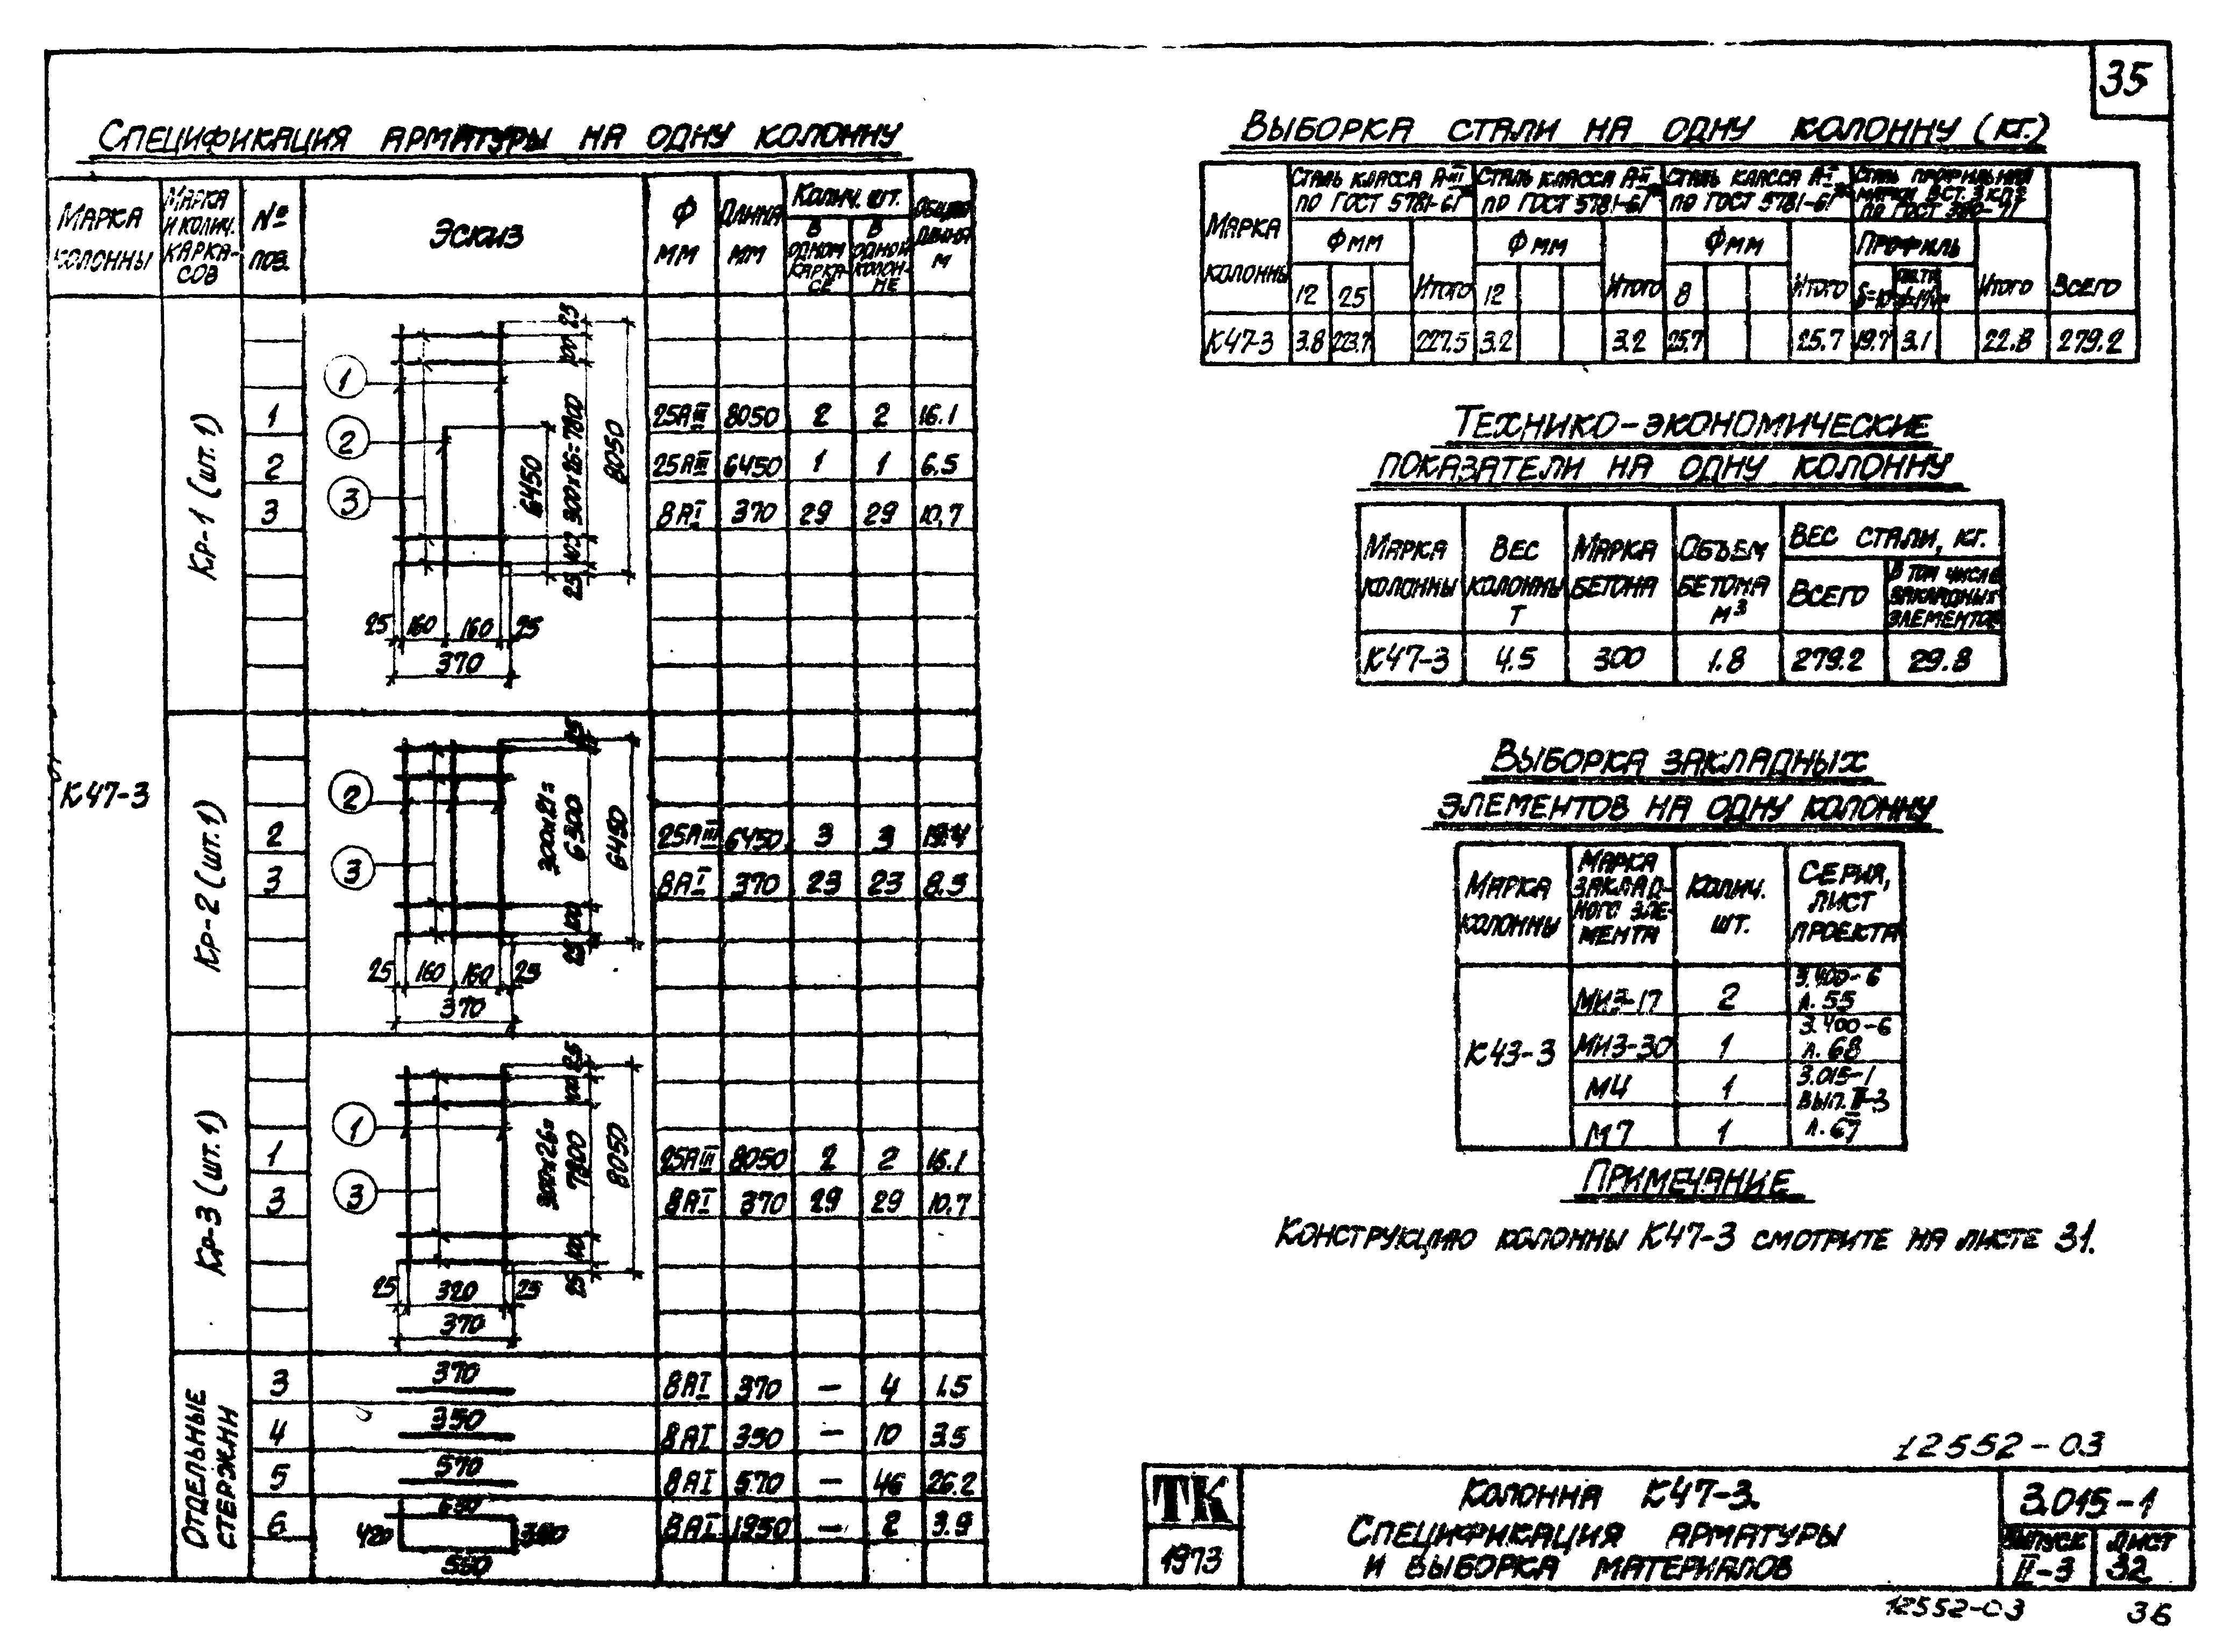 35
Спецификация арматуры на одну колонну
Марка колонны
Марка и колич. каркасов
№ поз.
Эскиз
Ф мм
Длина мм
Колич. шт.
в одном каркасе
в одной колонне
Общая длина м
К47-3
Кр-1 (шт. 1)
1 25АIII 8050 2 2 16.1
2 25АIII 6450 1 1 6.5
3 8АI 370 29 29 10.7
1
2
3
25
100
300х26=7800
6450
8050
100
25
25 160 160 25
370
Кр-2 (шт. 1)
2 25АIII 6450 3 3 19.4
3 8АI 370 23 23 8.5
2
3
25
300х21=
6300
6450
100
25
25 160 160 25
370
Кр-3 (шт. 1)
1 25АIII 8050 2 2 16.1
3 8АI 370 29 29 10.7
1
3
25
100
300х26=
7800
8050
100
25
25 320 25
370
Отдельные стержни
3 370 8АI 370 — 4 1.5
4 350 8АI 350 — 10 3.5
5 570 8АI 570 — 46 26.2
6 8АI 1950 — 2 3.9
420
550
Выборка стали на одну колонну (кг.)
Марка колонны
Сталь класса А-III по ГОСТ 5781-61*
Сталь класса А-II по ГОСТ 5781-61*
Сталь класса А-I по ГОСТ 5781-61*
Сталь профильная марки В Ст. 3 кп2 по ГОСТ 380-71
Всего
Ф мм Итого
Ф мм Итого
Ф мм Итого
Профиль Итого
12 25 12 8 δ=10
К47-3 3.8 223.7 227.5 3.2 3.2 25.7 25.7 19.7 3.1 22.8 279.2
Технико-экономические
показатели на одну колонну
Марка колонны
Вес колонны т
Марка бетона
Объем бетона м³
Вес стали, кг.
Всего
в том числе закладных элементов
К47-3 4.5 300 1.8 279.2 29.8
Выборка закладных
элементов на одну колонну
Марка колонны
Марка закладного элемента
Колич. шт.
Серия, лист проекта
К43-3
МИ3-17 2 3.400-6 л. 55
МИ3-30 1 3.400-6 л. 68
М4 1
М7 1
3.015-1
вып. II-3
л. 67
Примечание
Конструкцию колонны К47-3 смотрите на листе 31.
12552-03
ТК
1973
Колонна К47-3.
Спецификация арматуры
и выборка материалов
3.015-1
Выпуск II-3
Лист 32
12552-03
36